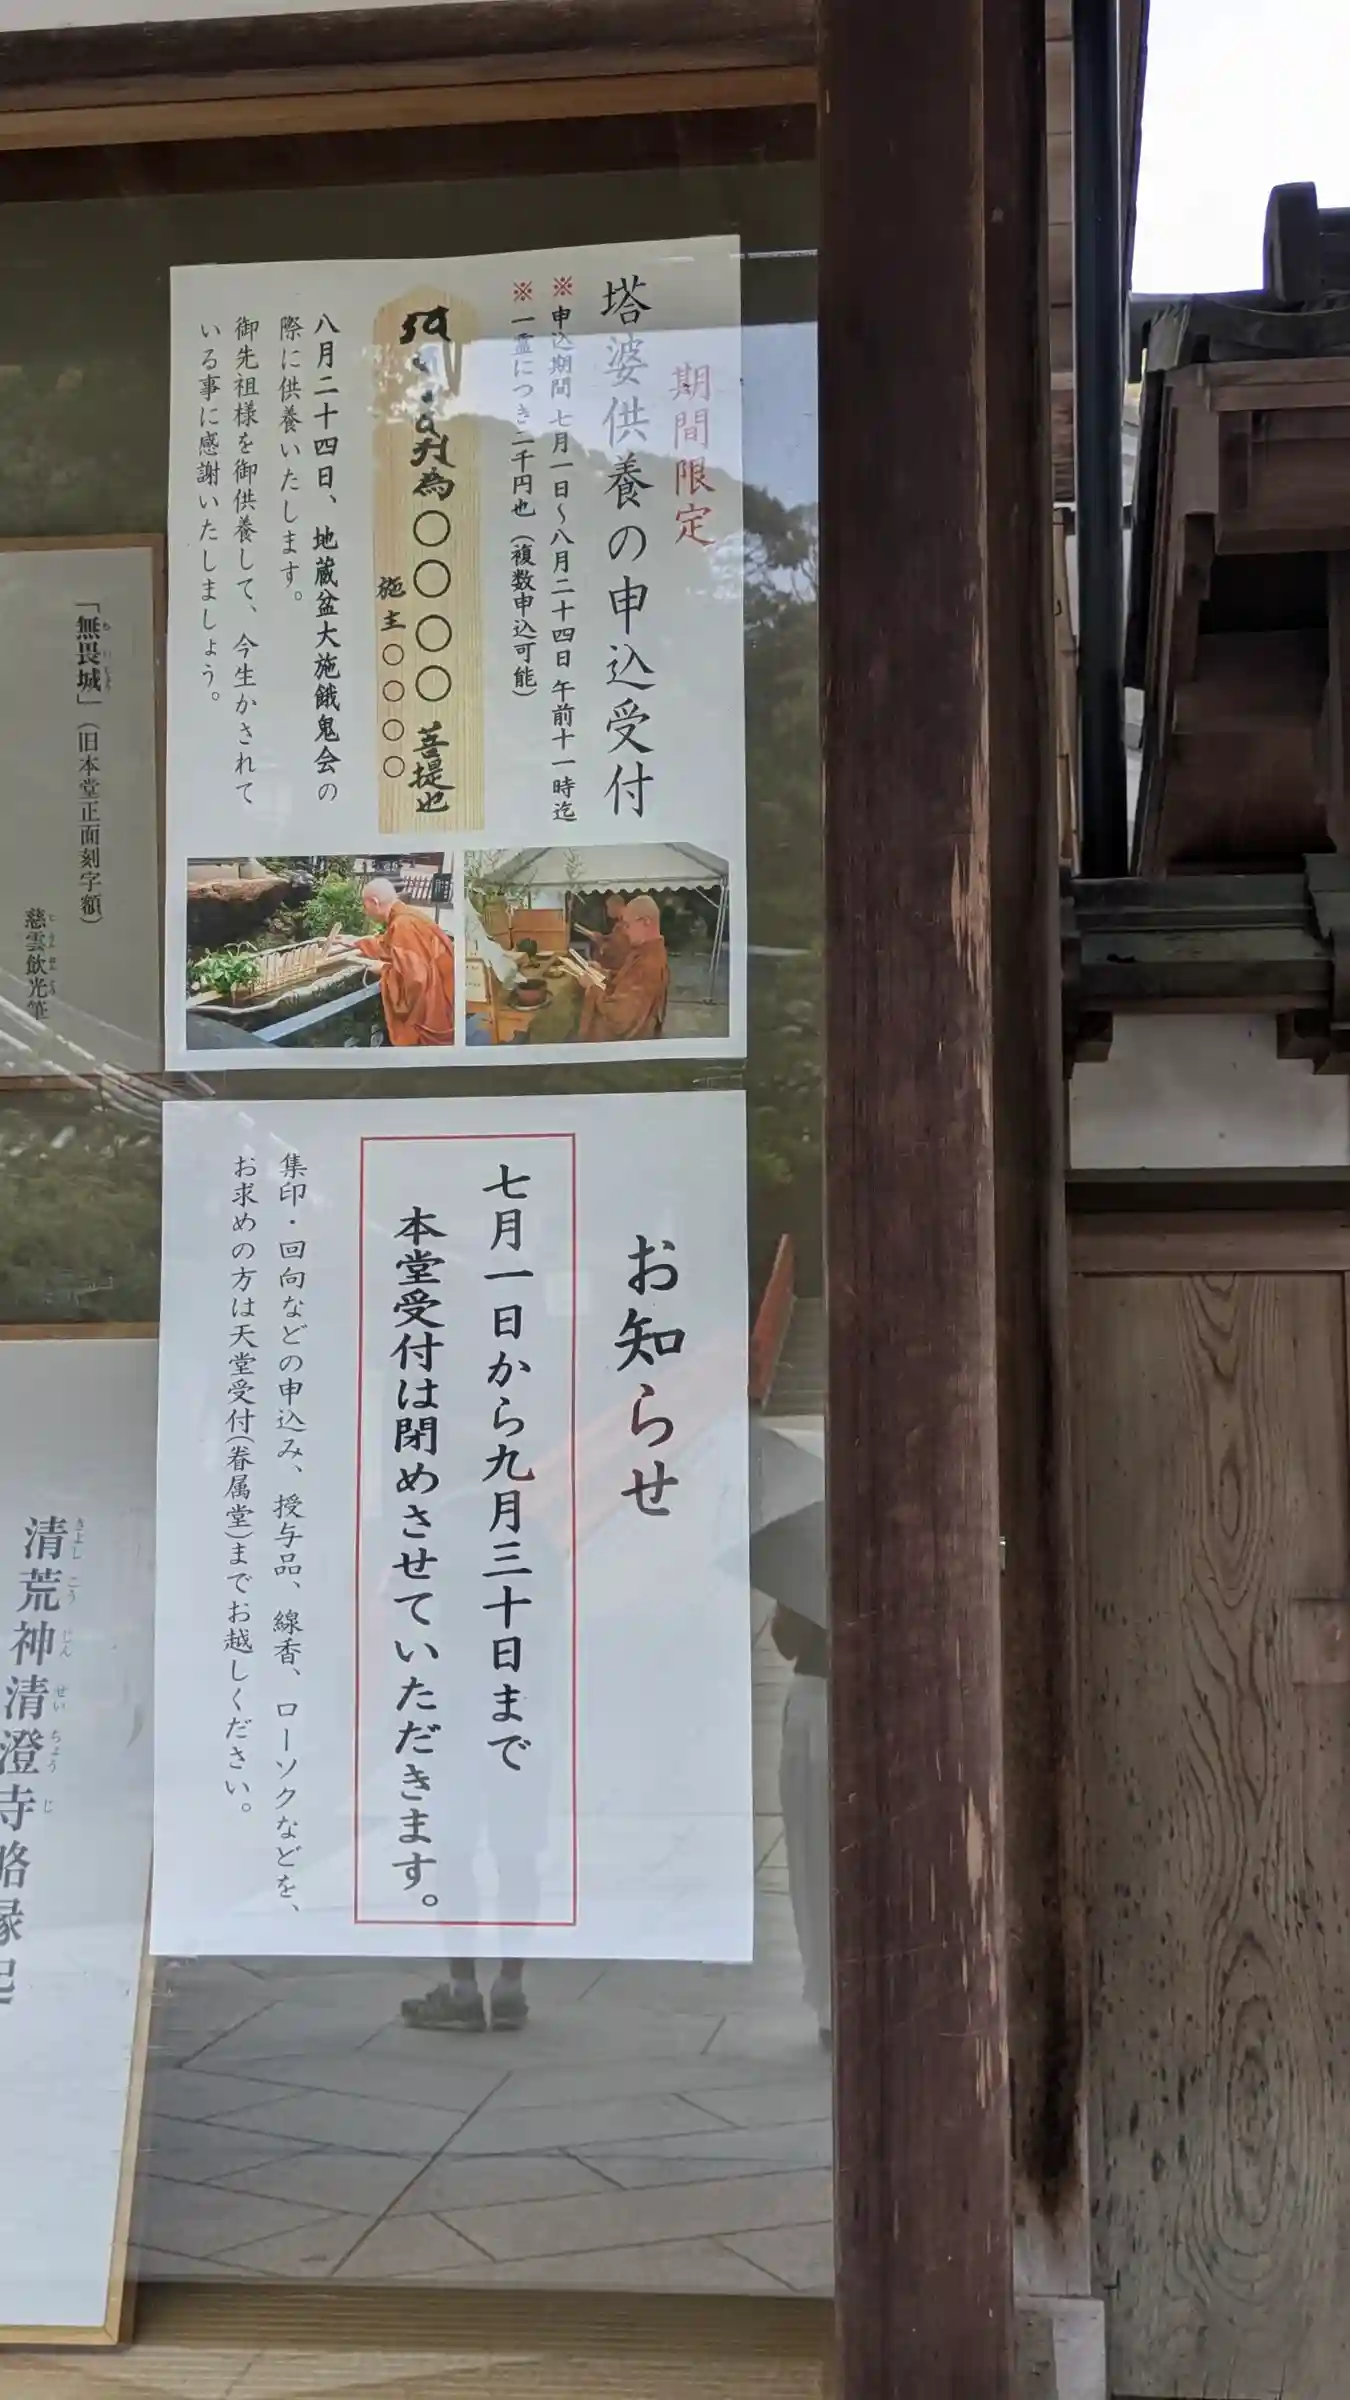 期間限定
塔婆供養の申込受付
※申込期間 七月一日〜八月二十四日 午前十一時迄
※一霊につき二千円也（複数申込可能）
為〇〇〇〇菩提也
施主〇〇〇〇
八月二十四日、地蔵盆大施餓鬼会の
際に供養いたします。
御先祖様を御供養して、今生かされて
いる事に感謝いたしましょう。
お知らせ
七月一日から九月三十日まで
本堂受付は閉めさせていただきます。
集印・回向などの申込み、授与品、線香、ローソクなどを、
お求めの方は天堂受付(眷属堂)までお越しください。
「無畏城」（旧本堂正面刻字額）
慈雲飲光筆
清荒神清澄寺略縁起
きよしこうじんせいちょうじ